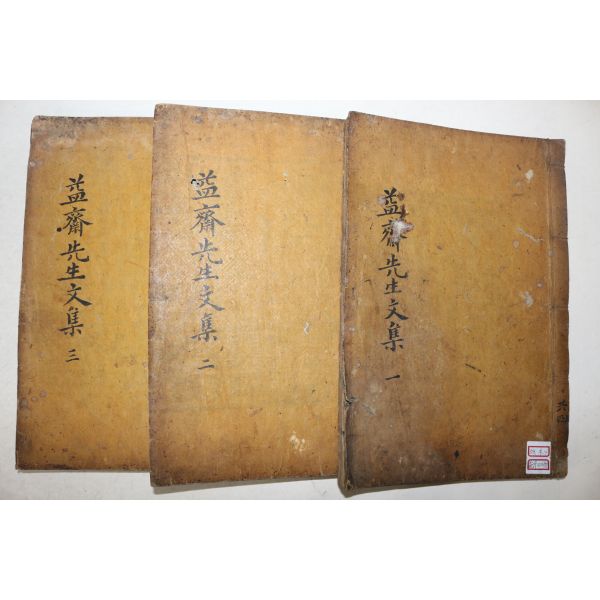 益齋先生文集 一
益齋先生文集 二
益齋先生文集 三
共四